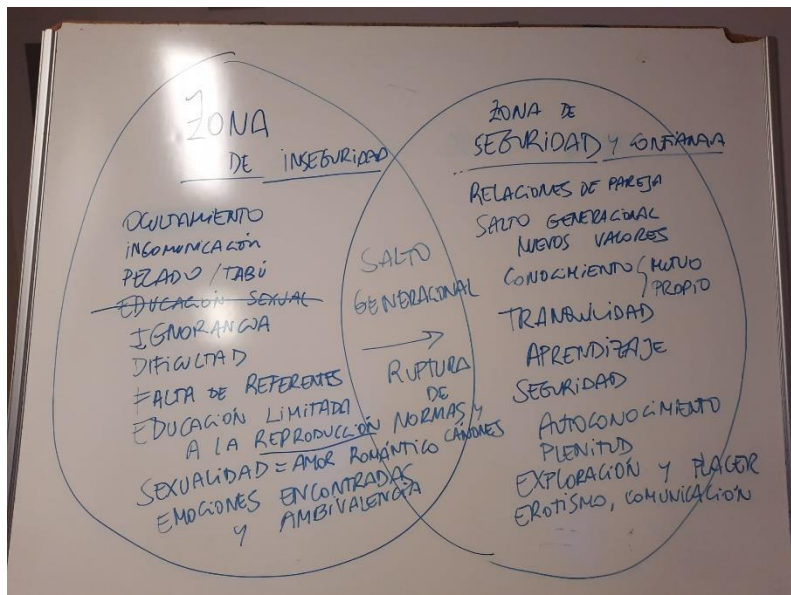 ZONA
DE INSEGURIDAD
OCULTAMIENTO
INCOMUNICACIÓN
PECADO / TABÚ
EDUCACIÓN SEXUAL
IGNORANCIA
DIFICULTAD
FALTA DE REFERENTES
EDUCACIÓN LIMITADA
A LA REPRODUCCIÓN
SEXUALIDAD = AMOR ROMÁNTICO
EMOCIONES ENCONTRADAS
Y AMBIVALENCIA
SALTO
GENERACIONAL
→
RUPTURA
DE
NORMAS Y
CÁNONES
ZONA DE
SEGURIDAD Y CONFIANZA
RELACIONES DE PAREJA
SALTO GENERACIONAL
NUEVOS VALORES
CONOCIMIENTO { MUTUO
PROPIO
TRANQUILIDAD
APRENDIZAJE
SEGURIDAD
AUTOCONOCIMIENTO
PLENITUD
EXPLORACIÓN Y PLACER
EROTISMO, COMUNICACIÓN